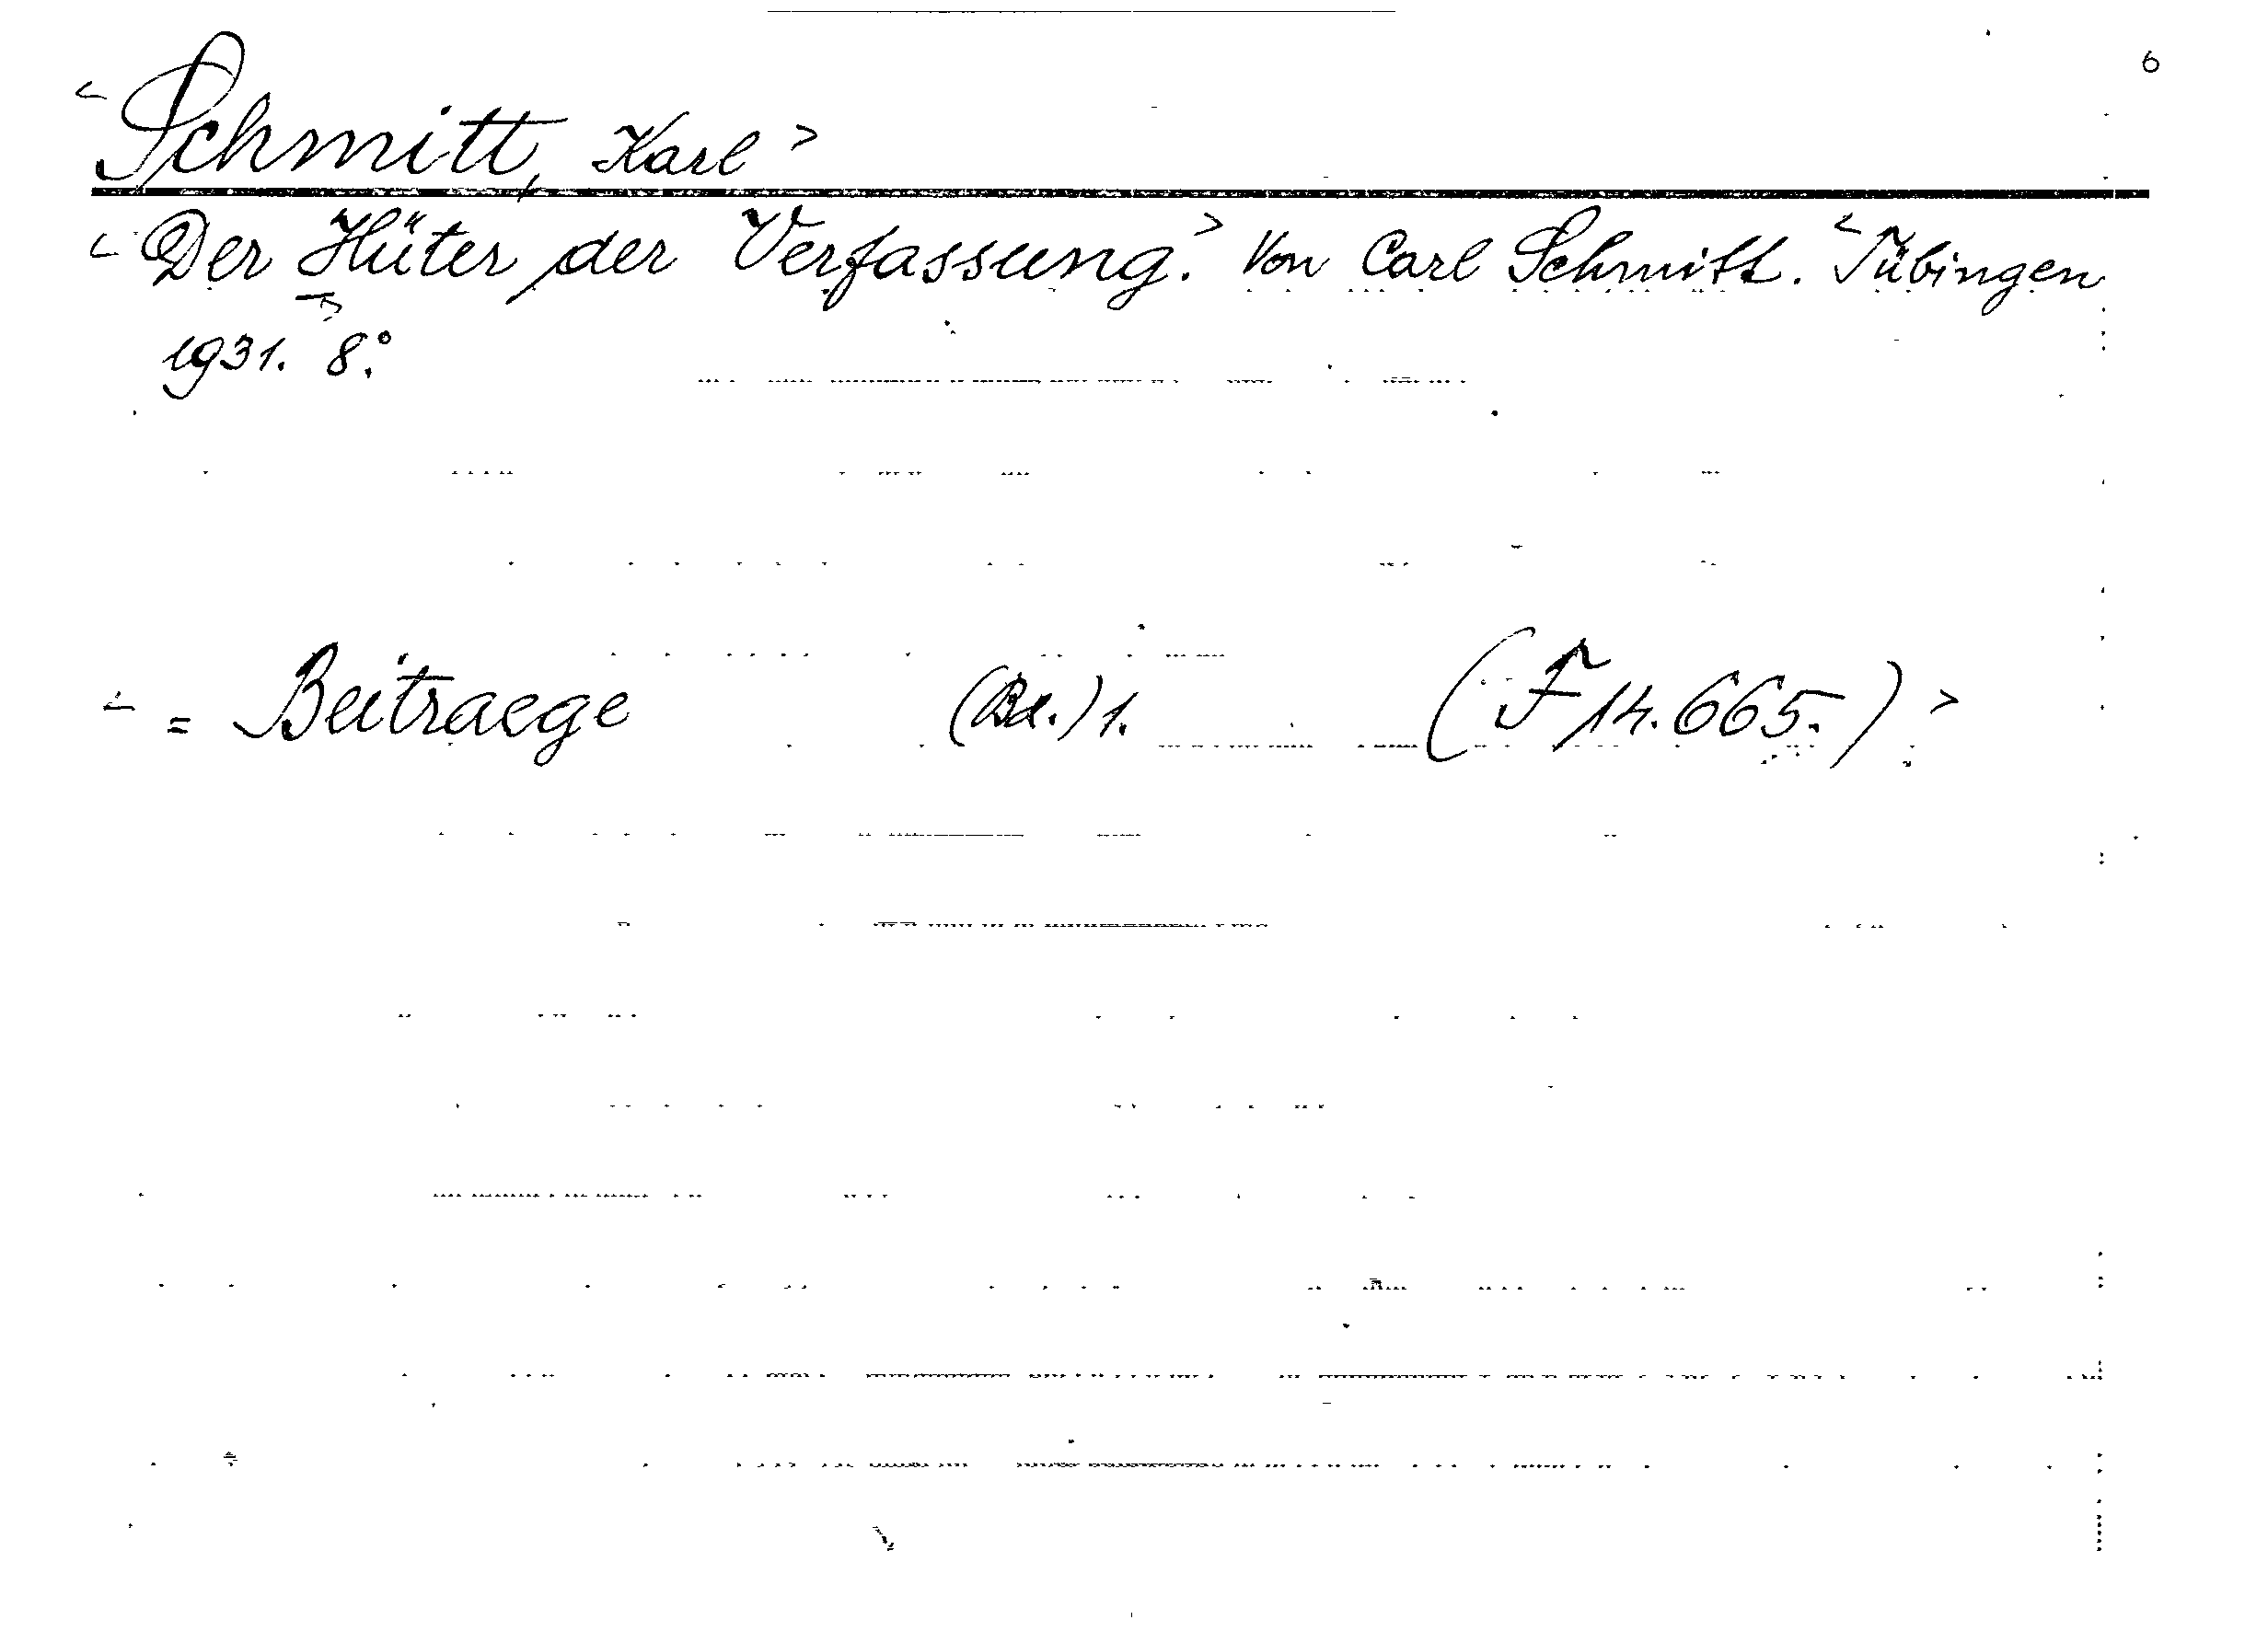 6
< Schmitt, Karl >
< Der Hüter der Verfassung. > Von Carl Schmitt. < Tübingen
1931. > 8°.
< = Beitraege (Bd.) 1. (F 14.665.) >